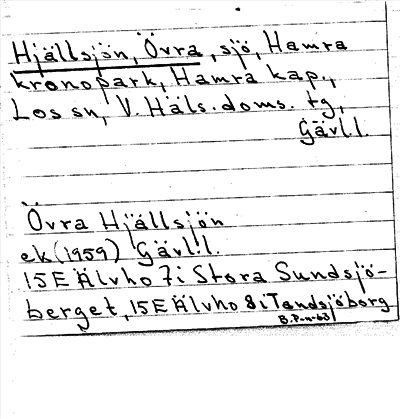 Hjällsjön, Övra, sjö, Hamra
kronopark, Hamra kap.,
Los sn, V. Häls. doms. tg,
Gävl.l.
Övra Hjällsjön
ek (1959) Gävl.l.
15E Älvho 7i Stora Sundsjö-
berget, 15E Älvho 8i Tandsjöborg